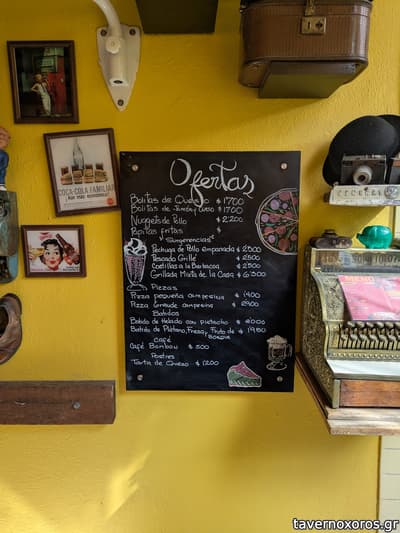 Ofertas
Bolitas de Queso $1700
Bolitas de Jamón y Queso $1700
Nuggets de Pollo $2,200
Papitas fritas $
"Sugerencias"
Pechuga de Pollo empanada ¢2500
Pescado Grillé ¢2500
Costillas a la Barbacoa ¢2500
Grillada Mixta de la Casa ¢6500
Pizzas
Pizza pequeña campesina
Pizza Grande campesina
Batidos
Batido de Helado con pistacho
Batido de Plátano, Fresa, Fruto de $1950
Bosque
Café
Café Bombou $500
Postres
Tarta de Queso $1200
COCA-COLA FAMILIAR
tavernoxoros.gr